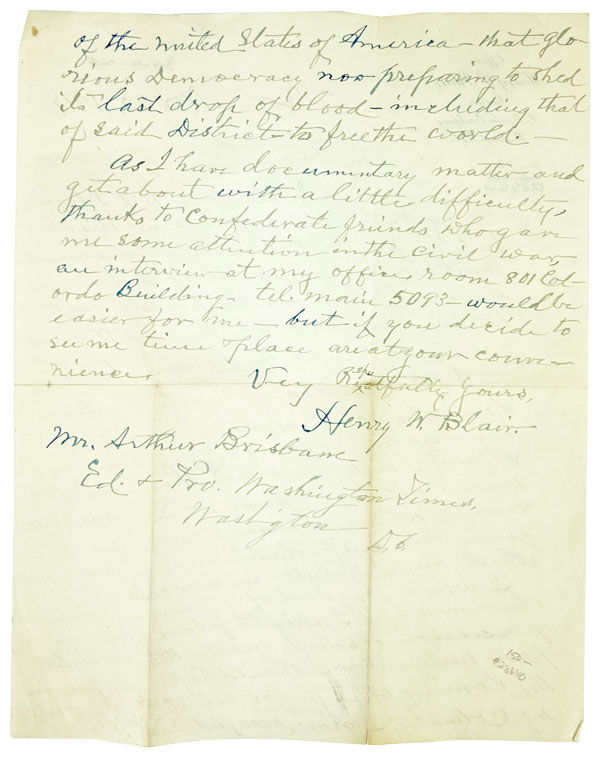 of the United States of America - that glo-
rious Democracy now preparing to shed
its last drop of blood - including that
of said District - to free the world. -
As I have documentary matter and
get about with a little difficulty,
thanks to Confederate friends who gave
me some attention in the civil war,
an interview at my office, room 801 Col-
ordo Building - tel. main 5093 - would be
easier for me - but if you decide to
see me time & place are at your conve-
nience.
Very Respectfully Yours,
Henry W. Blair.
Mr. Arthur Brisbane
Ed. & Pro. Washington Times,
Wash'gton
D.C.
150-
#28640